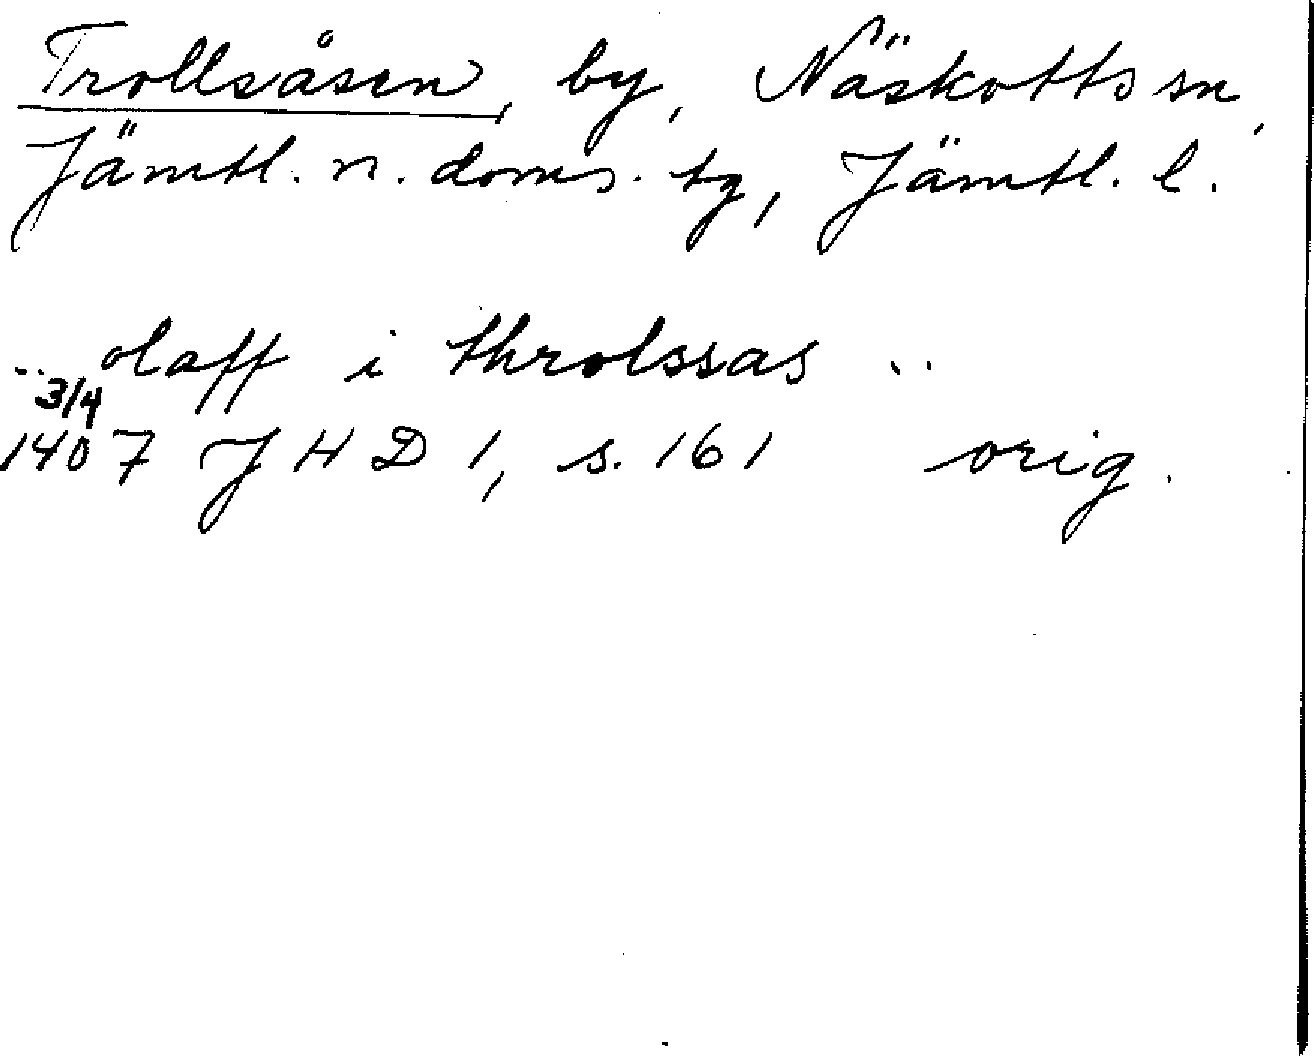 Trollsåsen, by, Näskotts sn,
Jämtl. n. doms. tg, Jämtl. l.
.. olaff i throlssas ..
3/4
1407 JHD 1, s. 161 orig.